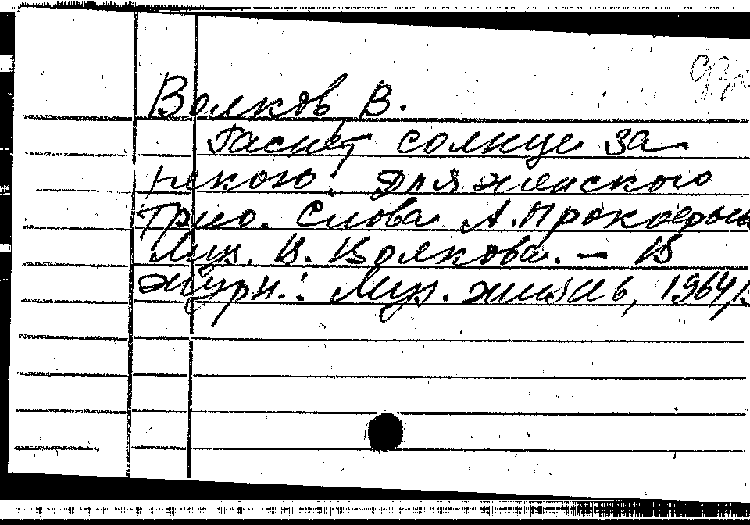 Волков В.
Гаснет солнце за
рекою. Для женского
трио. Слова А. Прокофьева
Муз. В. Волкова. – В
журн.: Муз. жизнь, 1964,